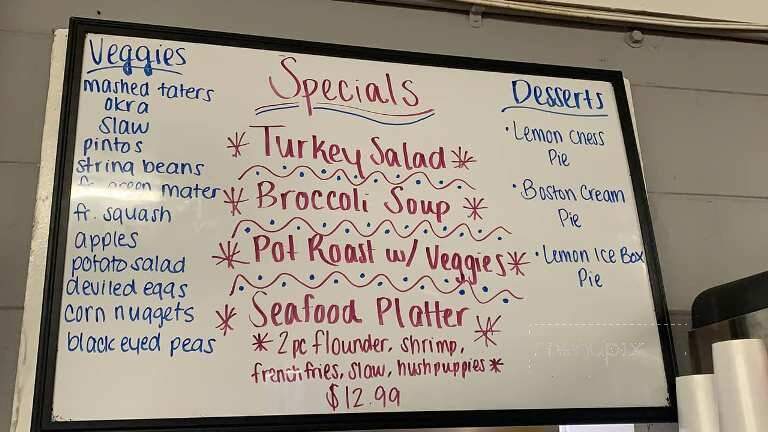 Veggies
mashed taters
okra
slaw
pintos
string beans
fr. green mater
fr. squash
apples
potato salad
deviled eggs
corn nuggets
black eyed peas
Specials
Turkey Salad
Broccoli Soup
Pot Roast w/ Veggies
Seafood Platter
* 2pc flounder, shrimp,
french fries, slaw, hushpuppies *
$12.99
Desserts
• Lemon Chess
Pie
• Boston Cream
Pie
• Lemon Ice Box
Pie
menupix